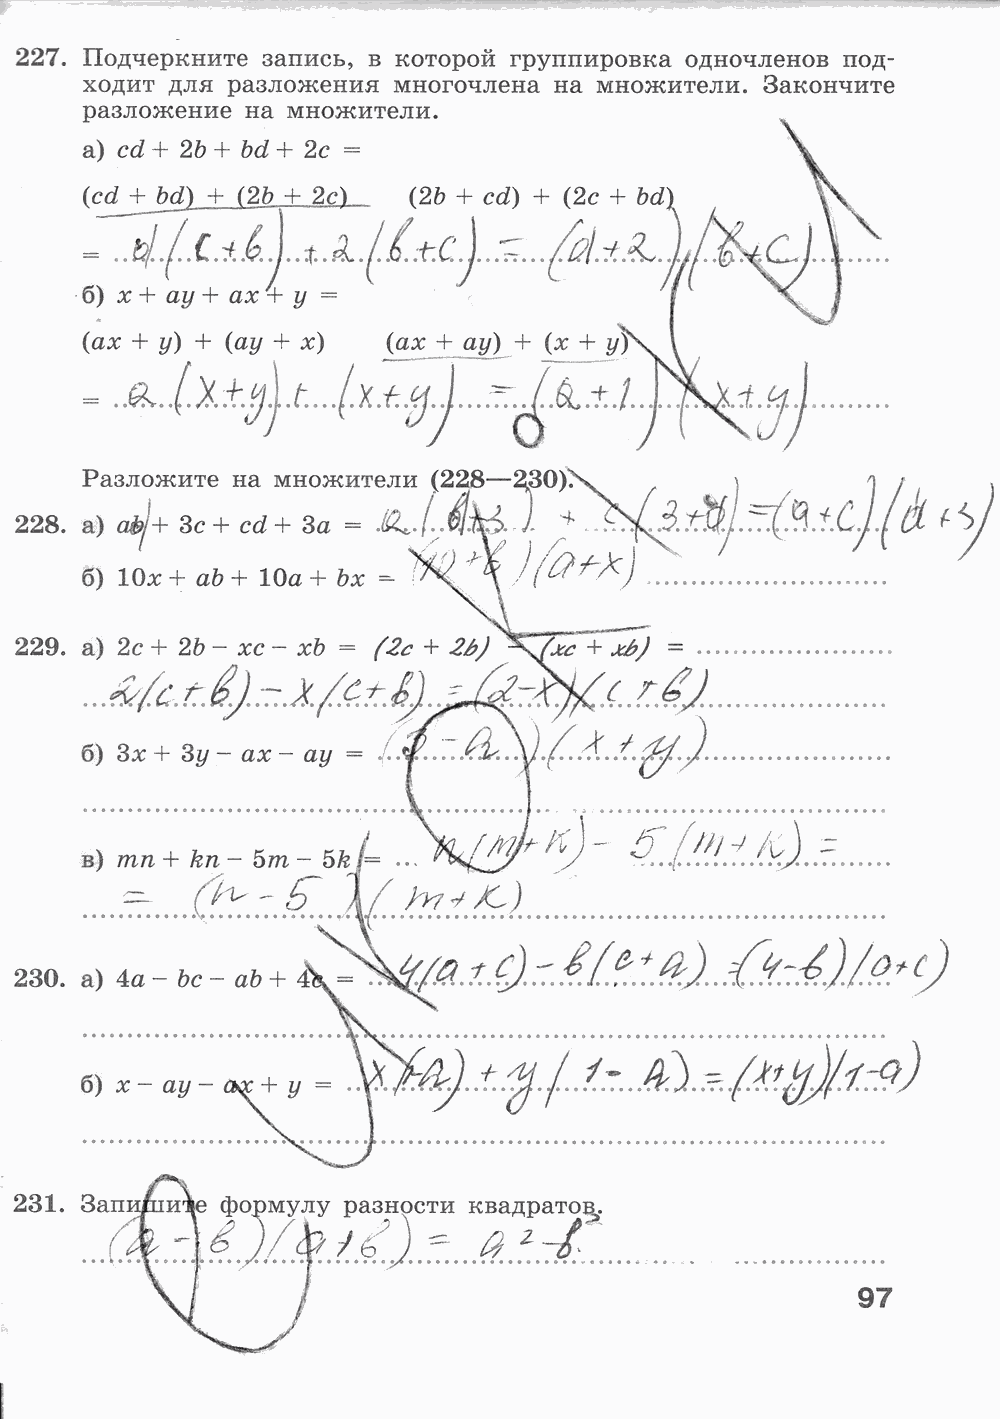 227. Подчеркните запись, в которой группировка одночленов под-
ходит для разложения многочлена на множители. Закончите
разложение на множители.
а) cd + 2b + bd + 2c =
(cd + bd) + (2b + 2c) (2b + cd) + (2c + bd)
= d(c+b) + 2(b+c) = (d+2)(b+c)
б) x + ay + ax + y =
(ax + y) + (ay + x) (ax + ay) + (x + y)
= a(x+y) + (x+y) = (a+1)(x+y)
Разложите на множители (228—230).
228. а) ad + 3c + cd + 3a = a(d+3) + c(3+d) = (a+c)(d+3)
б) 10x + ab + 10a + bx = (10+b)(a+x)
229. а) 2c + 2b − xc − xb = (2c + 2b) − (xc + xb) =
2(c+b) − x(c+b) = (2−x)(c+b)
б) 3x + 3y − ax − ay = (3−a)(x+y)
в) mn + kn − 5m − 5k = n(m+k) − 5(m+k) =
= (n−5)(m+k)
230. а) 4a − bc − ab + 4c = 4(a+c) − b(c+a) = (4−b)(a+c)
б) x − ay − ax + y = x(1−a) + y(1−a) = (x+y)(1−a)
231. Запишите формулу разности квадратов.
(a−b)(a+b) = a²−b²
97